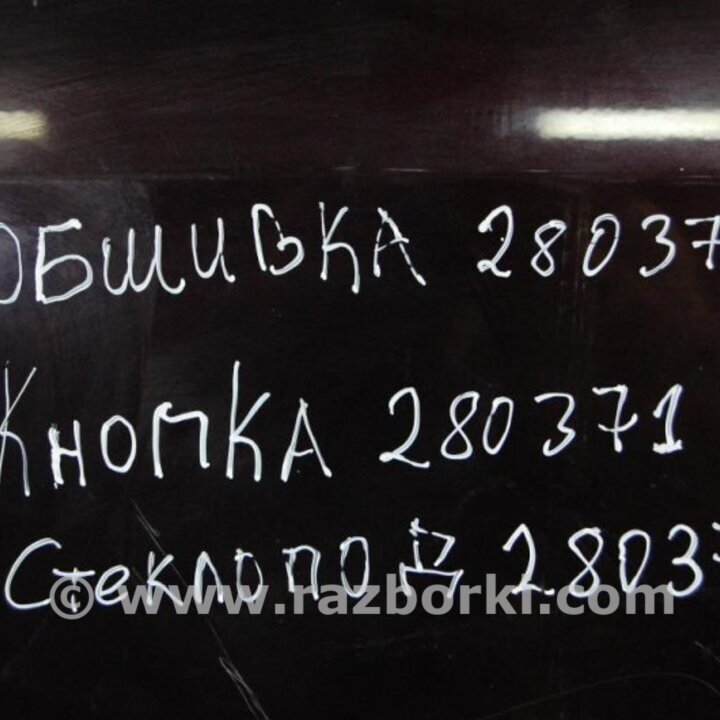 ОБШИВКА 28037
КНОПКА 280371
Стеклопод 28037
© www.razborki.com